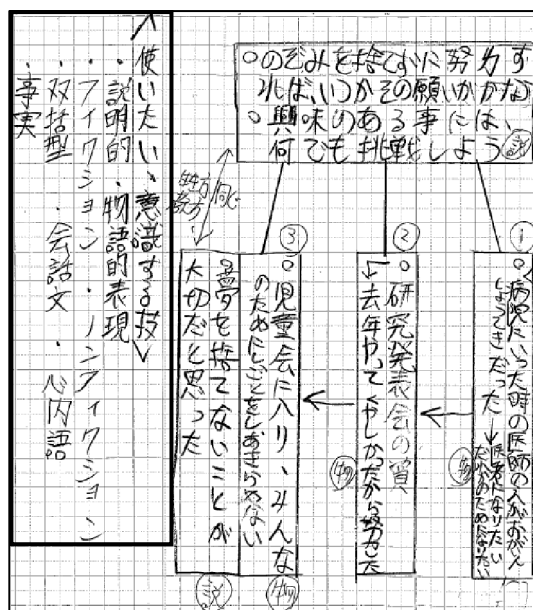 。のぞみを捨てずに努力す
れば、いつかその願いがかなう
。興味のある事には、
何でも挑戦しよう
説
①
。病院にいった時の医師の人がおがん
しょってきだった→医者になりたい
だれかのためになりたい
物
②
。研究発表会の賞
↓去年やってくやしかったから努力した
物
③
。児童会に入り、みんな
のためにしごとをしあきらめない
物
夢を捨てないことが
大切だと思った
説
同じ
<使いたい、意識する技>
・説明的・物語的表現
・フィクション・ノンフィクション
・双括型・会話文・心内語
・事実